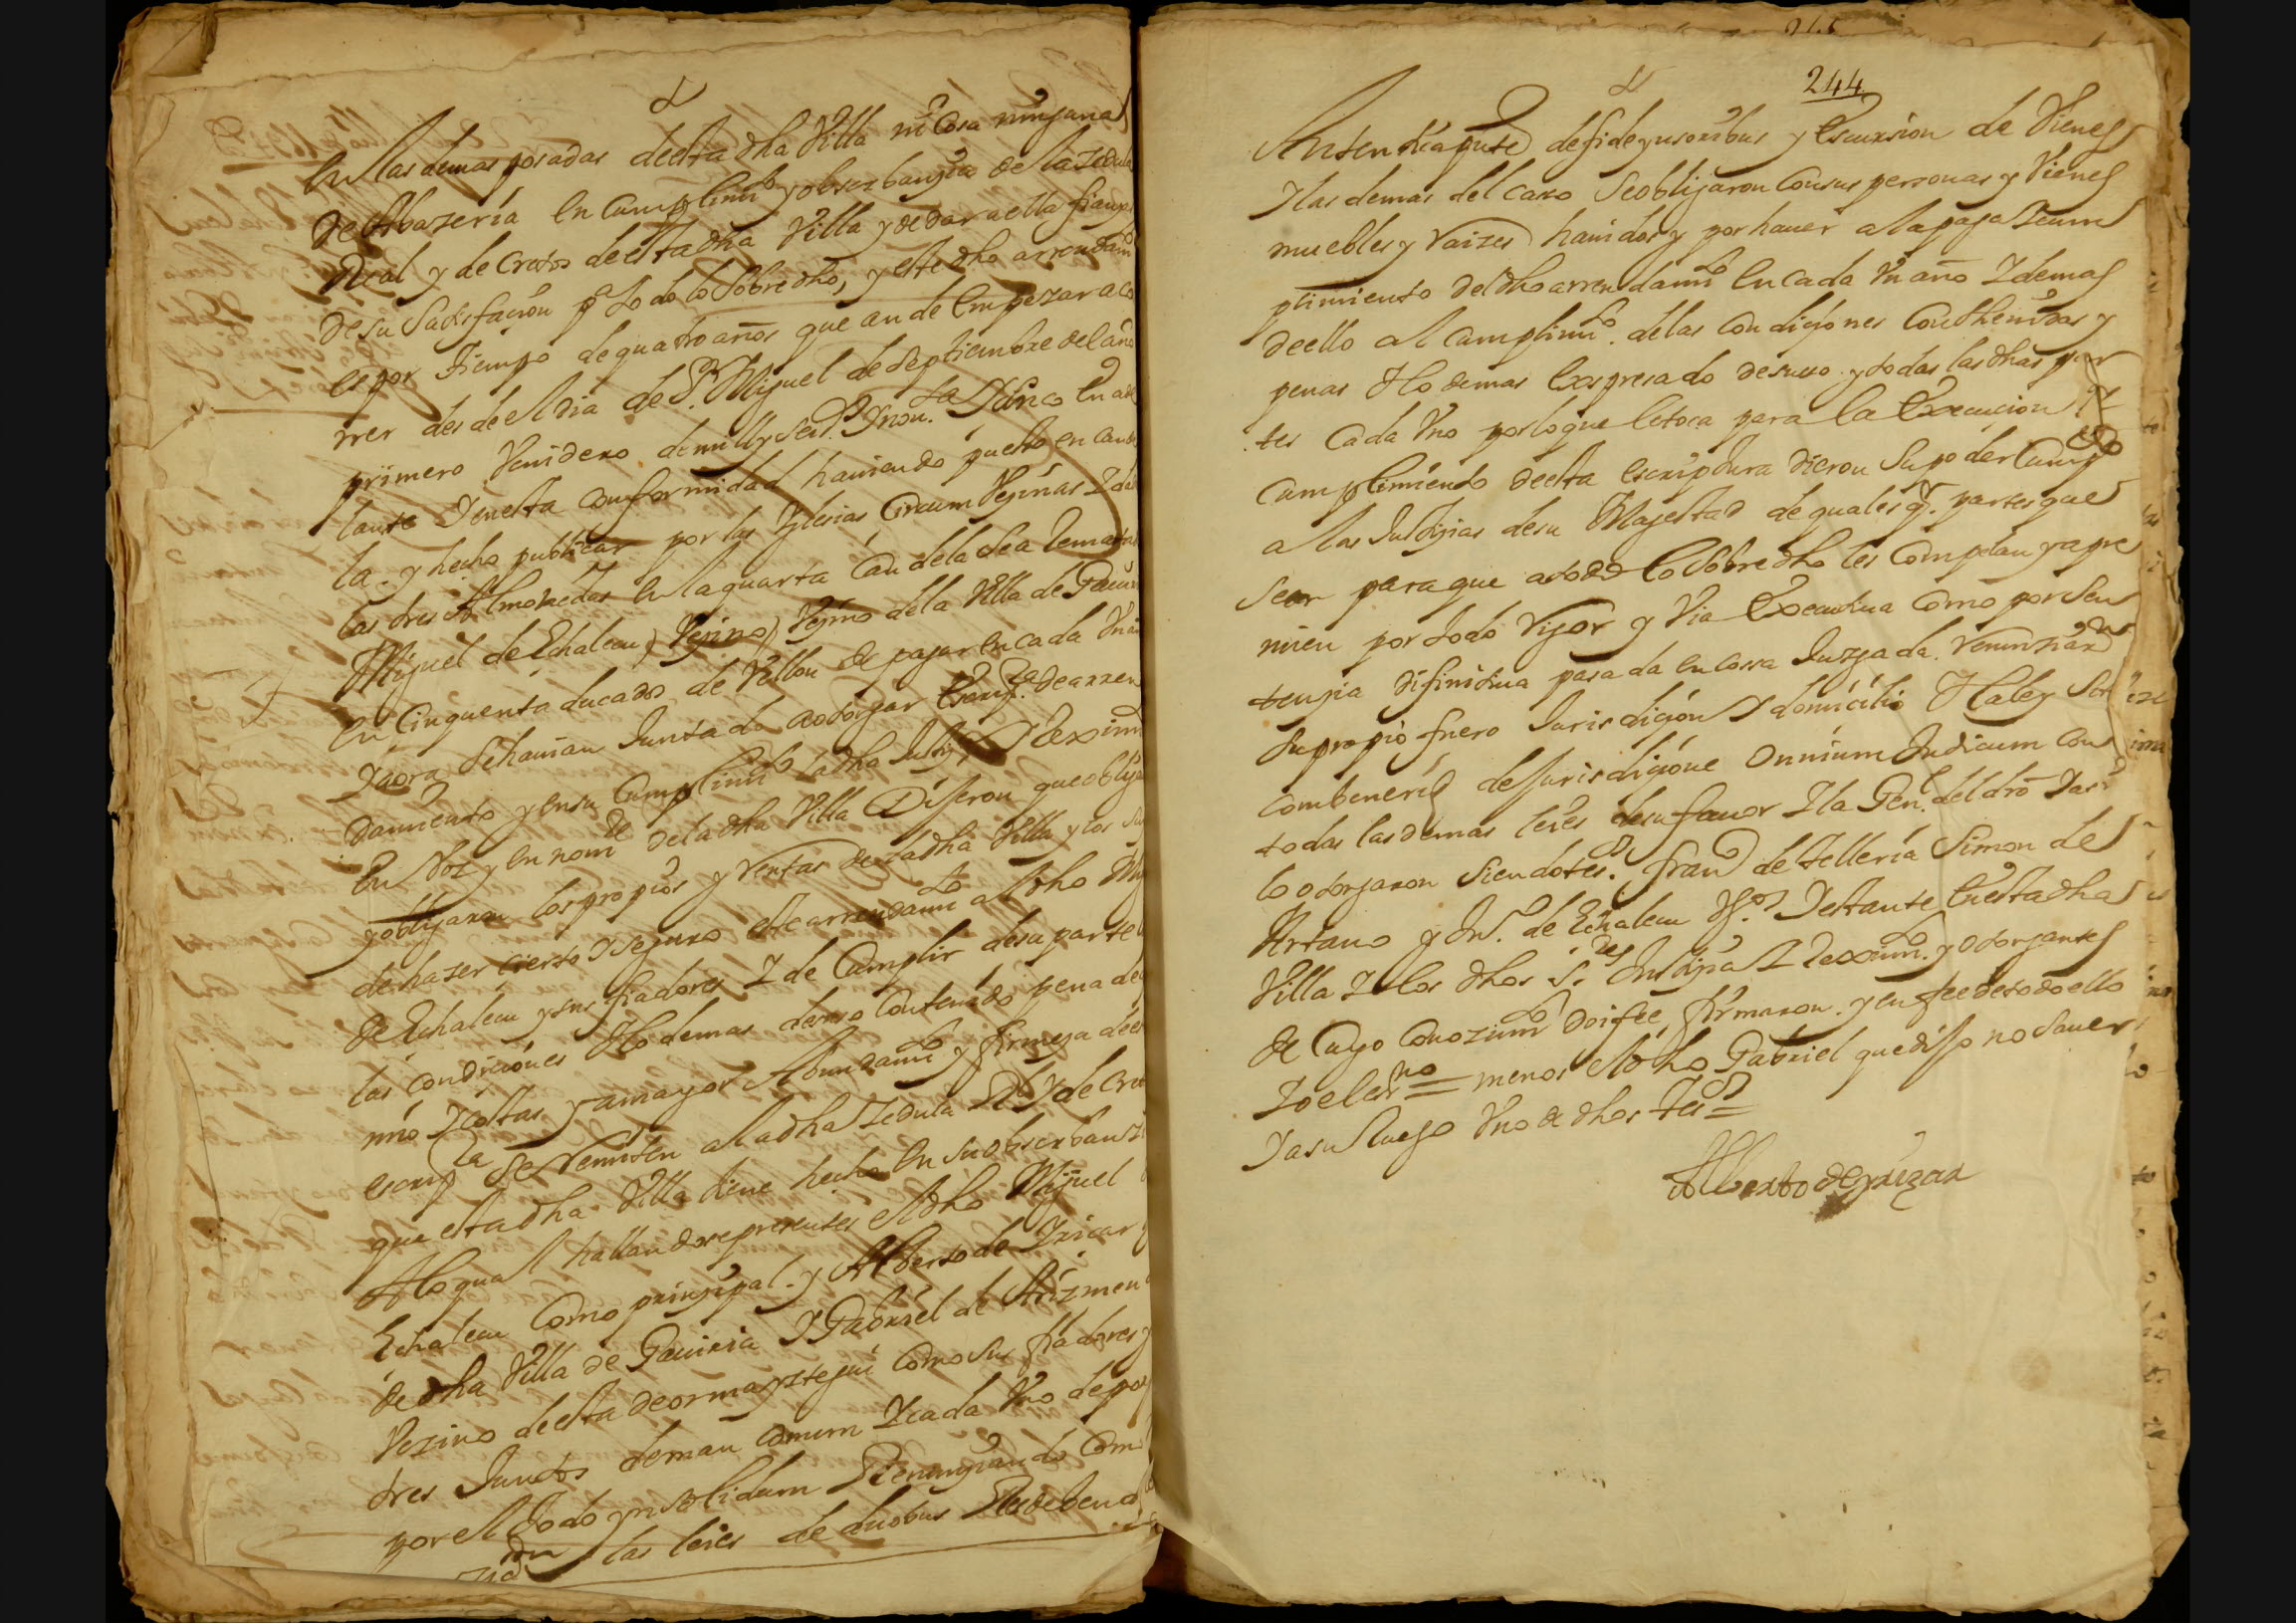 en las demas posadas desta dha Villa ni Cosa ninguna
de Abazeria en Cumplimto y obserbanzia de la zedula
Real y decretos desta dha Villa y de dar a ella fianzas
de su Satisfacion pa todo lo Sobre dho, y este dho arrendamto
es por tiempo de quatro años que an de Empezar a co
rrer desde el dia de Sn Miguel de Septiembre del año
primero Venidero de mill y Seisos y nouta y Cinco en ade
lante y en esta conformidad hauiendo puesto en cande
la y hecho publicar por las Yglesias Circum Vezinas y da
las tres Almonedas en la quarta Candela Se a Rematado
Miguel de Echaleeu Vezino Vezino de la Villa de Gauiria
en Cinquenta ducados de Vellon de pagar en cada Un año
y aora Se hauian Juntado a otorgar Escripra de arren
damiento y en su Cumplimto la dha Justa y Reximto
en Voz y en nome de la dha Villa Dijeron que obliga
y obligaron los propios y Rentas de la dha Villa y los Su
de hazer cierto y Seguro este arrendamto al dho Mig
de Echaleeu y sus fiadores y de Cumplir de su parte
las condiciones y lo demas de suso Contenido pena de
nno y costas y a mayor Abundamto y firmeza de es
escripra Se Remiten a la dha zedula Rl y decretos
que esta dha Villa tiene hecho en Su obserbanzia
A lo qual hallandose presentes el dho Miguel
Echaleeu Como prinzipal y Alberto de Yrizar
de dha Villa de Gauiria y Gabriel de Arizmen
Vezino desta de ormayztegui Como Sus fiadores y
tres Juntos de man comun y cada Uno de por
por el todo ynsolidum Renunziando Com
Ziaron las leies de duobus Res de bendi
244
Autentica presente de fideyusoribus y Escursion de Vienes
y las demas del caso Se obligaron Con sus personas y Vienes
muebles y Raizes hauidos y por hauer a la paga y cum
plimiento del dho arrendamto en cada Un año y demas
de ello al Cumplimto de las condiciones Conthenidas y
penas y lo demas Expresado de suso y todas las dhas par
tes Cada Uno por lo que le toca para la Execucion y
Cumplimiento desta escriptura dieron Su poder Cumpdo
a las Justizias de su Magestad de qualesqr partes que
Sean para que a todo lo Sobre dho les Compelan y apre
mien por todo Rigor y Via Executiua Como por Sen
tenzia difinitiua pasada en cossa Juzgada Renunziaron
Su propio fuero Jurisdicion y domicilio y la ley Sit
combenerit de Jurisdicione Onnium Judicum Con
todas las demas leies de su fauor y la Genl del dro y asi
lo otorgaron Siendo tesos Franco de Telleria Simon de
Artano y Jn. de Echaleeu Vsos y estante en esta dha
Villa y los dhos Sres Justizia y Reximto y otorgantes
de Cuyo Conozimto doi fee, firmaron y en fee de todo ello
yo el esno = menos el dho Gabriel que dijo no Sauer
y a su Ruego Uno de dhos tesos =
Alberto de yrizar